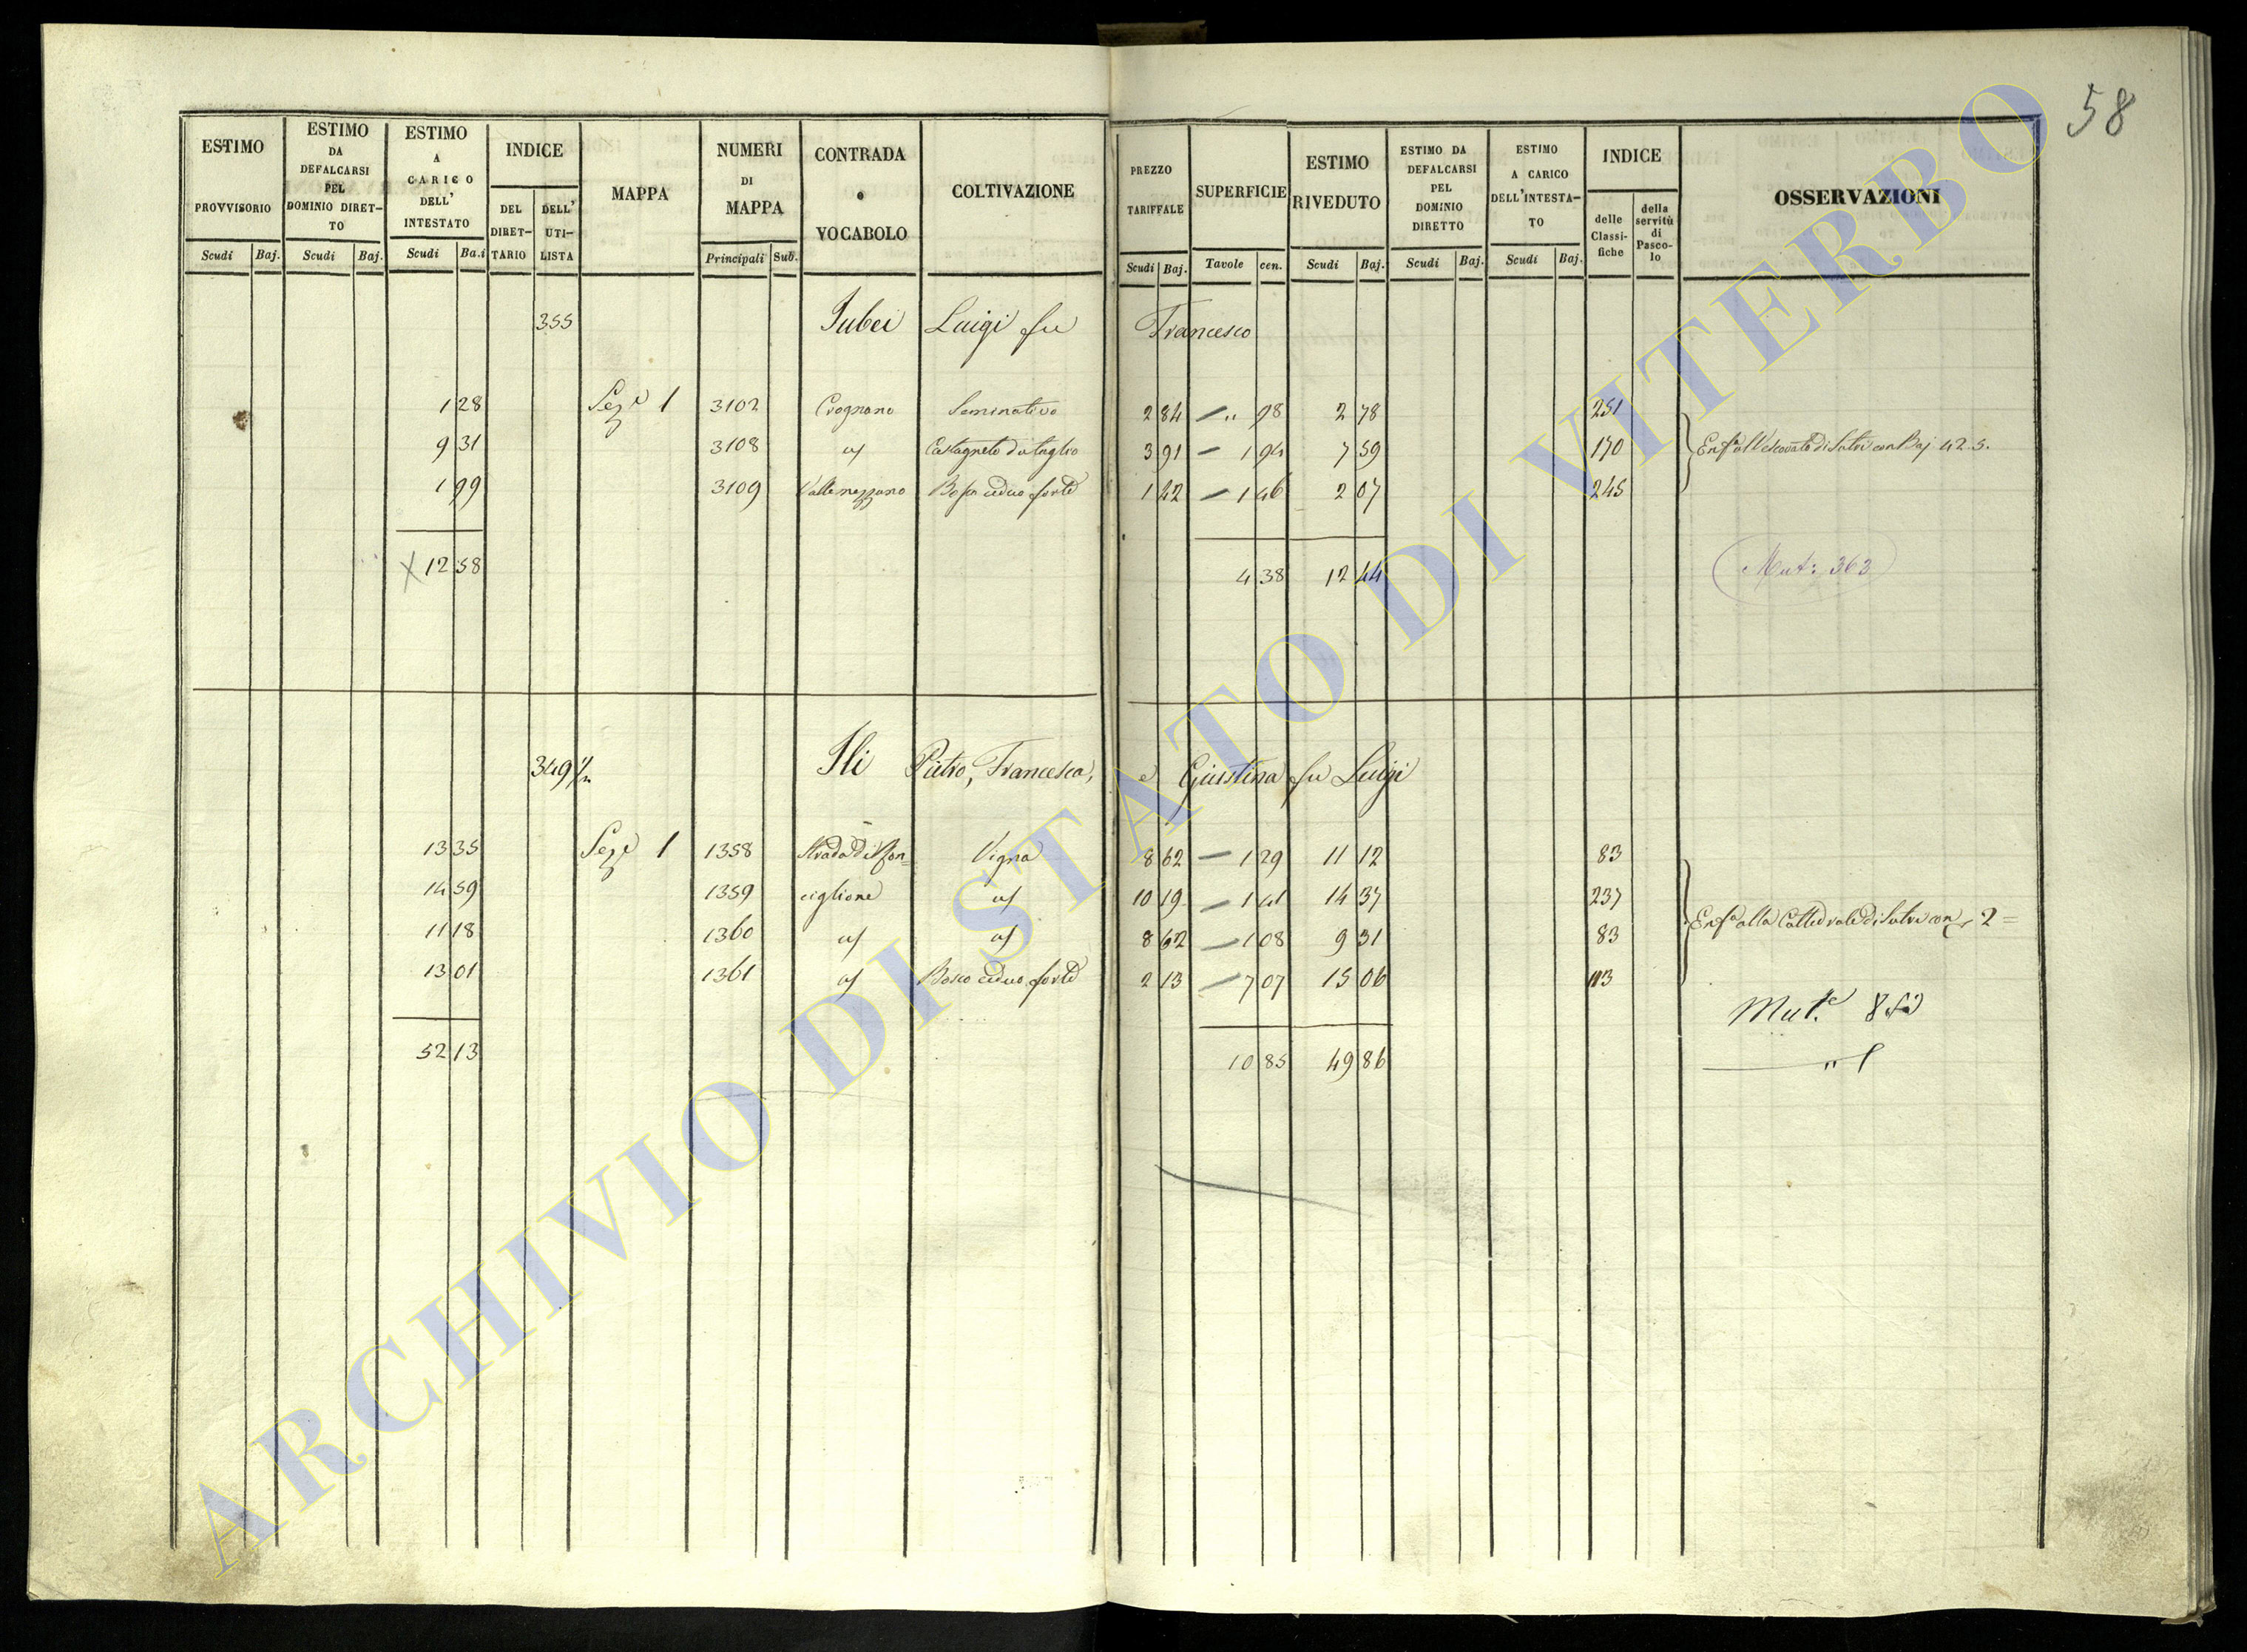 58
ESTIMO PROVVISORIO Scudi Baj.
ESTIMO DA DEFALCARSI PEL DOMINIO DIRET- TO Scudi Baj.
ESTIMO A CARICO DELL' INTESTATO Scudi Ba.i
INDICE DEL DIRET- TARIO DELL' UTI- LISTA
MAPPA
NUMERI DI MAPPA Principali Sub.
CONTRADA e VOCABOLO
COLTIVAZIONE
PREZZO TARIFFALE Scudi Baj.
SUPERFICIE Tavole cen.
ESTIMO RIVEDUTO Scudi Baj.
ESTIMO DA DEFALCARSI PEL DOMINIO DIRETTO Scudi Baj.
ESTIMO A CARICO DELL'INTESTA- TO Scudi Baj.
INDICE delle Classi- fiche della servitù di Pasco- lo
OSSERVAZIONI
355 Jubei Luigi fu Francesco
1 28 Sez.e 1 3102 Crognano Seminativo 2 84 — " 98 2 78 251
9 31 3108 a/ Castagneto da taglio 3 91 — 1 94 7 59 170 Enf.a all Vescovato di Sutri con Baj 42.5.
1 99 3109 Valle nezzano Bosco ceduo forte 1 42 — 1 46 2 07 245
X 12 58 4 38 12 44 Mut: 363
349 1/2 Ili Pietro, Francesca, e Giustina fu Luigi
13 35 Sez.e 1 1358 Strada di Ron= Vigna 8 62 — 1 29 11 12 83
14 59 1359 ciglione a/ 10 19 — 1 41 14 37 237
11 18 1360 a/ a/ 8 62 — 1 08 9 31 83 Enf.a alla Cattedrale di Sutri con 2 =
13 01 1361 a/ Bosco ceduo forte 2 13 — 7 07 15 06 113
Mut.e
52 13 10 85 49 86
ARCHIVIO DI STATO DI VITERBO